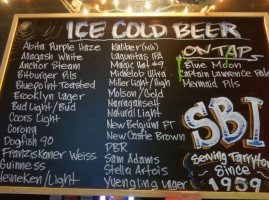 ICE COLD BEER
Abita Purple Haze
Allagash White
Anchor Steam
Bitburger Pils
Bluepoint Toasted
Brooklyn Lager
Bud Light/Bud
Coors Light
Corona
Dogfish 90
Franziskaner Weiss
Guinness
Heineken/Light
Kaliber (N/A)
Lagunitas IPA
Magic Hat #9
Michelob Ultra
Miller Light/High
Molson/Gold
Narragansett
Natural Light
New Belgium FT
New Castle Brown
PBR
Sam Adams
Stella Artois
Yuengling Lager
ON TAP
Blue Moon
Captain Lawrence Pale
Mermaid Pils
SBI
Serving Tarrytown
Since
1959